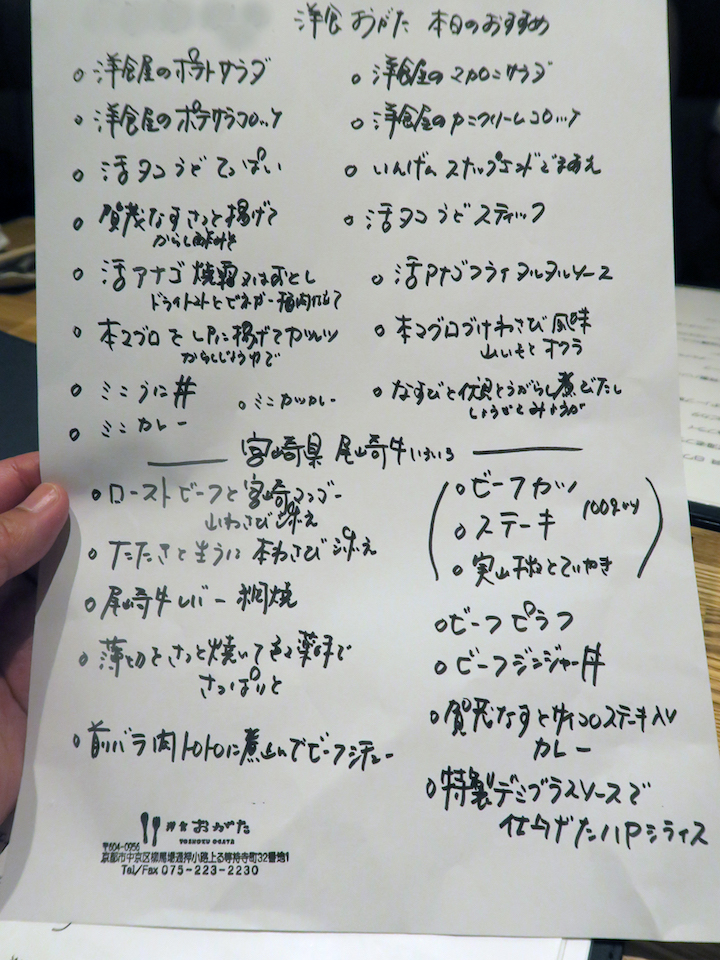 洋食 おがた 本日のおすすめ
○ 洋食屋のポテトサラダ
○ 洋食屋のポテサラコロッケ
○ 活タコうどてっぱい
○ 賀茂なすさっと揚げて
からし
○ 活アナゴ 焼霜又はおとし
ドライトマトとビネガー 梅肉
○ 本マグロをレアに揚げてカツレツ
からしじょうゆで
○ ミニうに丼
○ ミニカツカレー
○ ミニカレー
○ 洋食屋のマカロニサラダ
○ 洋食屋のカニクリームコロッケ
○ いんげん スナップエンドごまあえ
○ 活タコうどスティック
○ 活アナゴフライ タルタルソース
○ 本マグロづけわさび風味
山いもとオクラ
○ なすびと伏見とうがらし煮びたし
しょうがとみょうが
宮崎県 尾崎牛いろいろ
○ ローストビーフと宮崎マンゴー
山わさび添え
○ たたきと生うに 本わさび添え
○ 尾崎牛レバー 網焼
○ 薄切さっと焼いて 薬味で
さっぱりと
○ 前バラ肉トロトロに煮込んでビーフシチュー
○ ビーフカツ
○ ステーキ
100gより
○ 実山椒とていやき
○ ビーフピラフ
○ ビーフジンジャー丼
○ 賀茂なすとサイコロステーキ入り
カレー
○ 特製デミグラスソースで
仕上げたハヤシライス
洋食 おがた
YOSHOKU OGATA
〒604-0956
京都市中京区柳馬場通押小路上る等持寺町32番地1
Tel/Fax 075-223-2230